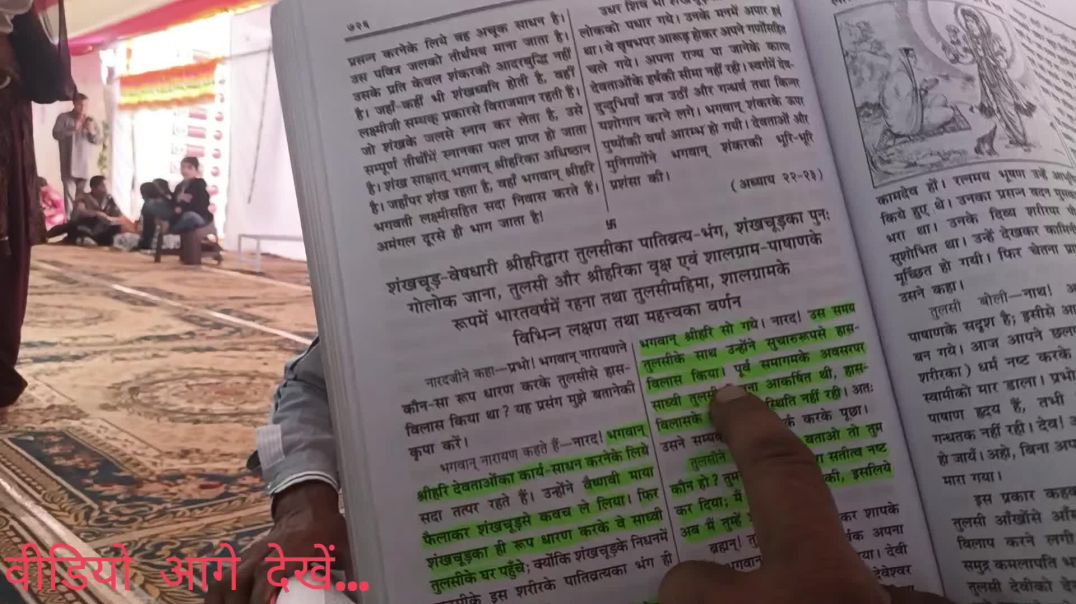 ७२६
प्रसन्न करनेके लिये वह अचूक साधन है।
उस पवित्र जलको तीर्थमय माना जाता है।
उसके प्रति केवल शंकरकी आदरबुद्धि नहीं
है। जहाँ-कहीं भी शंखध्वनि होती है, वहीं
लक्ष्मीजी सम्यक् प्रकारसे विराजमान रहती हैं।
जो शंखके जलसे स्नान कर लेता है, उसे
सम्पूर्ण तीर्थोंमें स्नानका फल प्राप्त हो जाता
है। शंख साक्षात् भगवान् श्रीहरिका अधिष्ठान
है। जहाँपर शंख रहता है, वहाँ भगवान् श्रीहरि
भगवती लक्ष्मीसहित सदा निवास करते हैं।
अमंगल दूरसे ही भाग जाता है।
उधर शिव भी
लोकको पधार गये। उनके मनमें अपार हर्ष
था। वे वृषभपर आरूढ़ होकर अपने गणोंसहित
चले गये। अपना राज्य पा जानेके कारण
देवताओंके हर्षकी सीमा नहीं रही। स्वर्गमें देव-
दुन्दुभियाँ बज उठीं और गन्धर्व तथा किन्नर
यशोगान करने लगे। भगवान् शंकरके ऊपर
पुष्पोंकी वर्षा आरम्भ हो गयी। देवताओं और
मुनिगणोंने भगवान् शंकरकी भूरि-भूरि
प्रशंसा की।
(अध्याय २२-२३)
शंखचूड़-वेषधारी श्रीहरिद्वारा तुलसीका पातिव्रत्य-भंग, शंखचूड़का पुनः
गोलोक जाना, तुलसी और श्रीहरिका वृक्ष एवं शालग्राम-पाषाणके
रूपमें भारतवर्षमें रहना तथा तुलसीमहिमा, शालग्रामके
विभिन्न लक्षण तथा महत्त्वका वर्णन
नारदजीने कहा—प्रभो! भगवान् नारायणने
कौन-सा रूप धारण करके तुलसीसे हास-
विलास किया था? यह प्रसंग मुझे बतानेकी
कृपा करें।
भगवान् नारायण कहते हैं—नारद! भगवान्
श्रीहरि देवताओंका कार्य-साधन करनेके लिये
सदा तत्पर रहते हैं। उन्होंने वैष्णवी माया
फैलाकर शंखचूड़से कवच ले लिया। फिर
शंखचूड़का ही रूप धारण करके वे साध्वी
तुलसीके घर पहुँचे; क्योंकि शंखचूड़के निधनमें
इस शरीरके पातिव्रत्यका भंग ही
भगवान् श्रीहरि सो गये। नारद! उस समय
तुलसीके साथ उन्होंने सुचारुरूपसे हास-
विलास किया। पूर्व समागमके अवसरपर
साध्वी आकर्षित थी, हास-
विलासके स्थिति नहीं रही। अतः
उसने करके पूछा।
तुलसीने बताओ तो तुम
कौन हो? सतीत्व नष्ट
कर दिया; की, इसलिये
अब मैं तुम्हें
कर शापके
ब्रह्मन्! अपना
भगवान् देवी
देवेश्वर
कामदेव हों। रत्नमय भूषण उन्हें
किये हुए थे। उनका प्रसन्न वदन
भरा था। उनके दिव्य शरीरपर
सुशोभित था। उन्हें देखकर
मूर्च्छित हो गयी। फिर चेतना
उसने कहा।
तुलसी बोली—नाथ!
पाषाणके सदृश है; इसीसे
बन गये। आज आपने छल
शरीरका) धर्म नष्ट करके
स्वामीको मार डाला। प्रभो
पाषाण हृदय हैं, तभी
गन्धतक नहीं रही। देव!
हो जायँ। अहो, बिना
मारा गया।
इस प्रकार
तुलसी आँखोंसे
विलाप करने लगी
समुद्र कमलापति
तुलसी देवीको
वीडियो आगे देखें...